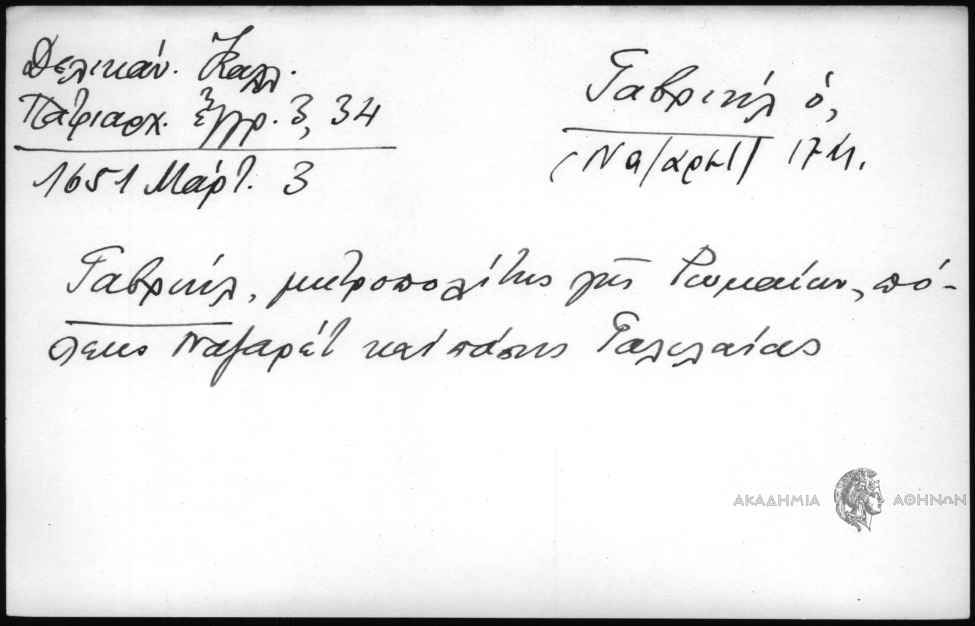 Δελικάν. Καλλ.
Πατριαρχ. ἔγγρ. 3, 34
1651 Μάρτ. 3
Γαβριήλ ὁ,
(Ναζαρέτ) 17 αἰ.
Γαβριήλ, μητροπολίτης τῆς Ῥωμαίων, πό-
λεως Ναζαρέτ καὶ πάσης Γαλιλαίας
ΑΚΑΔΗΜΙΑ ΑΘΗΝΩΝ